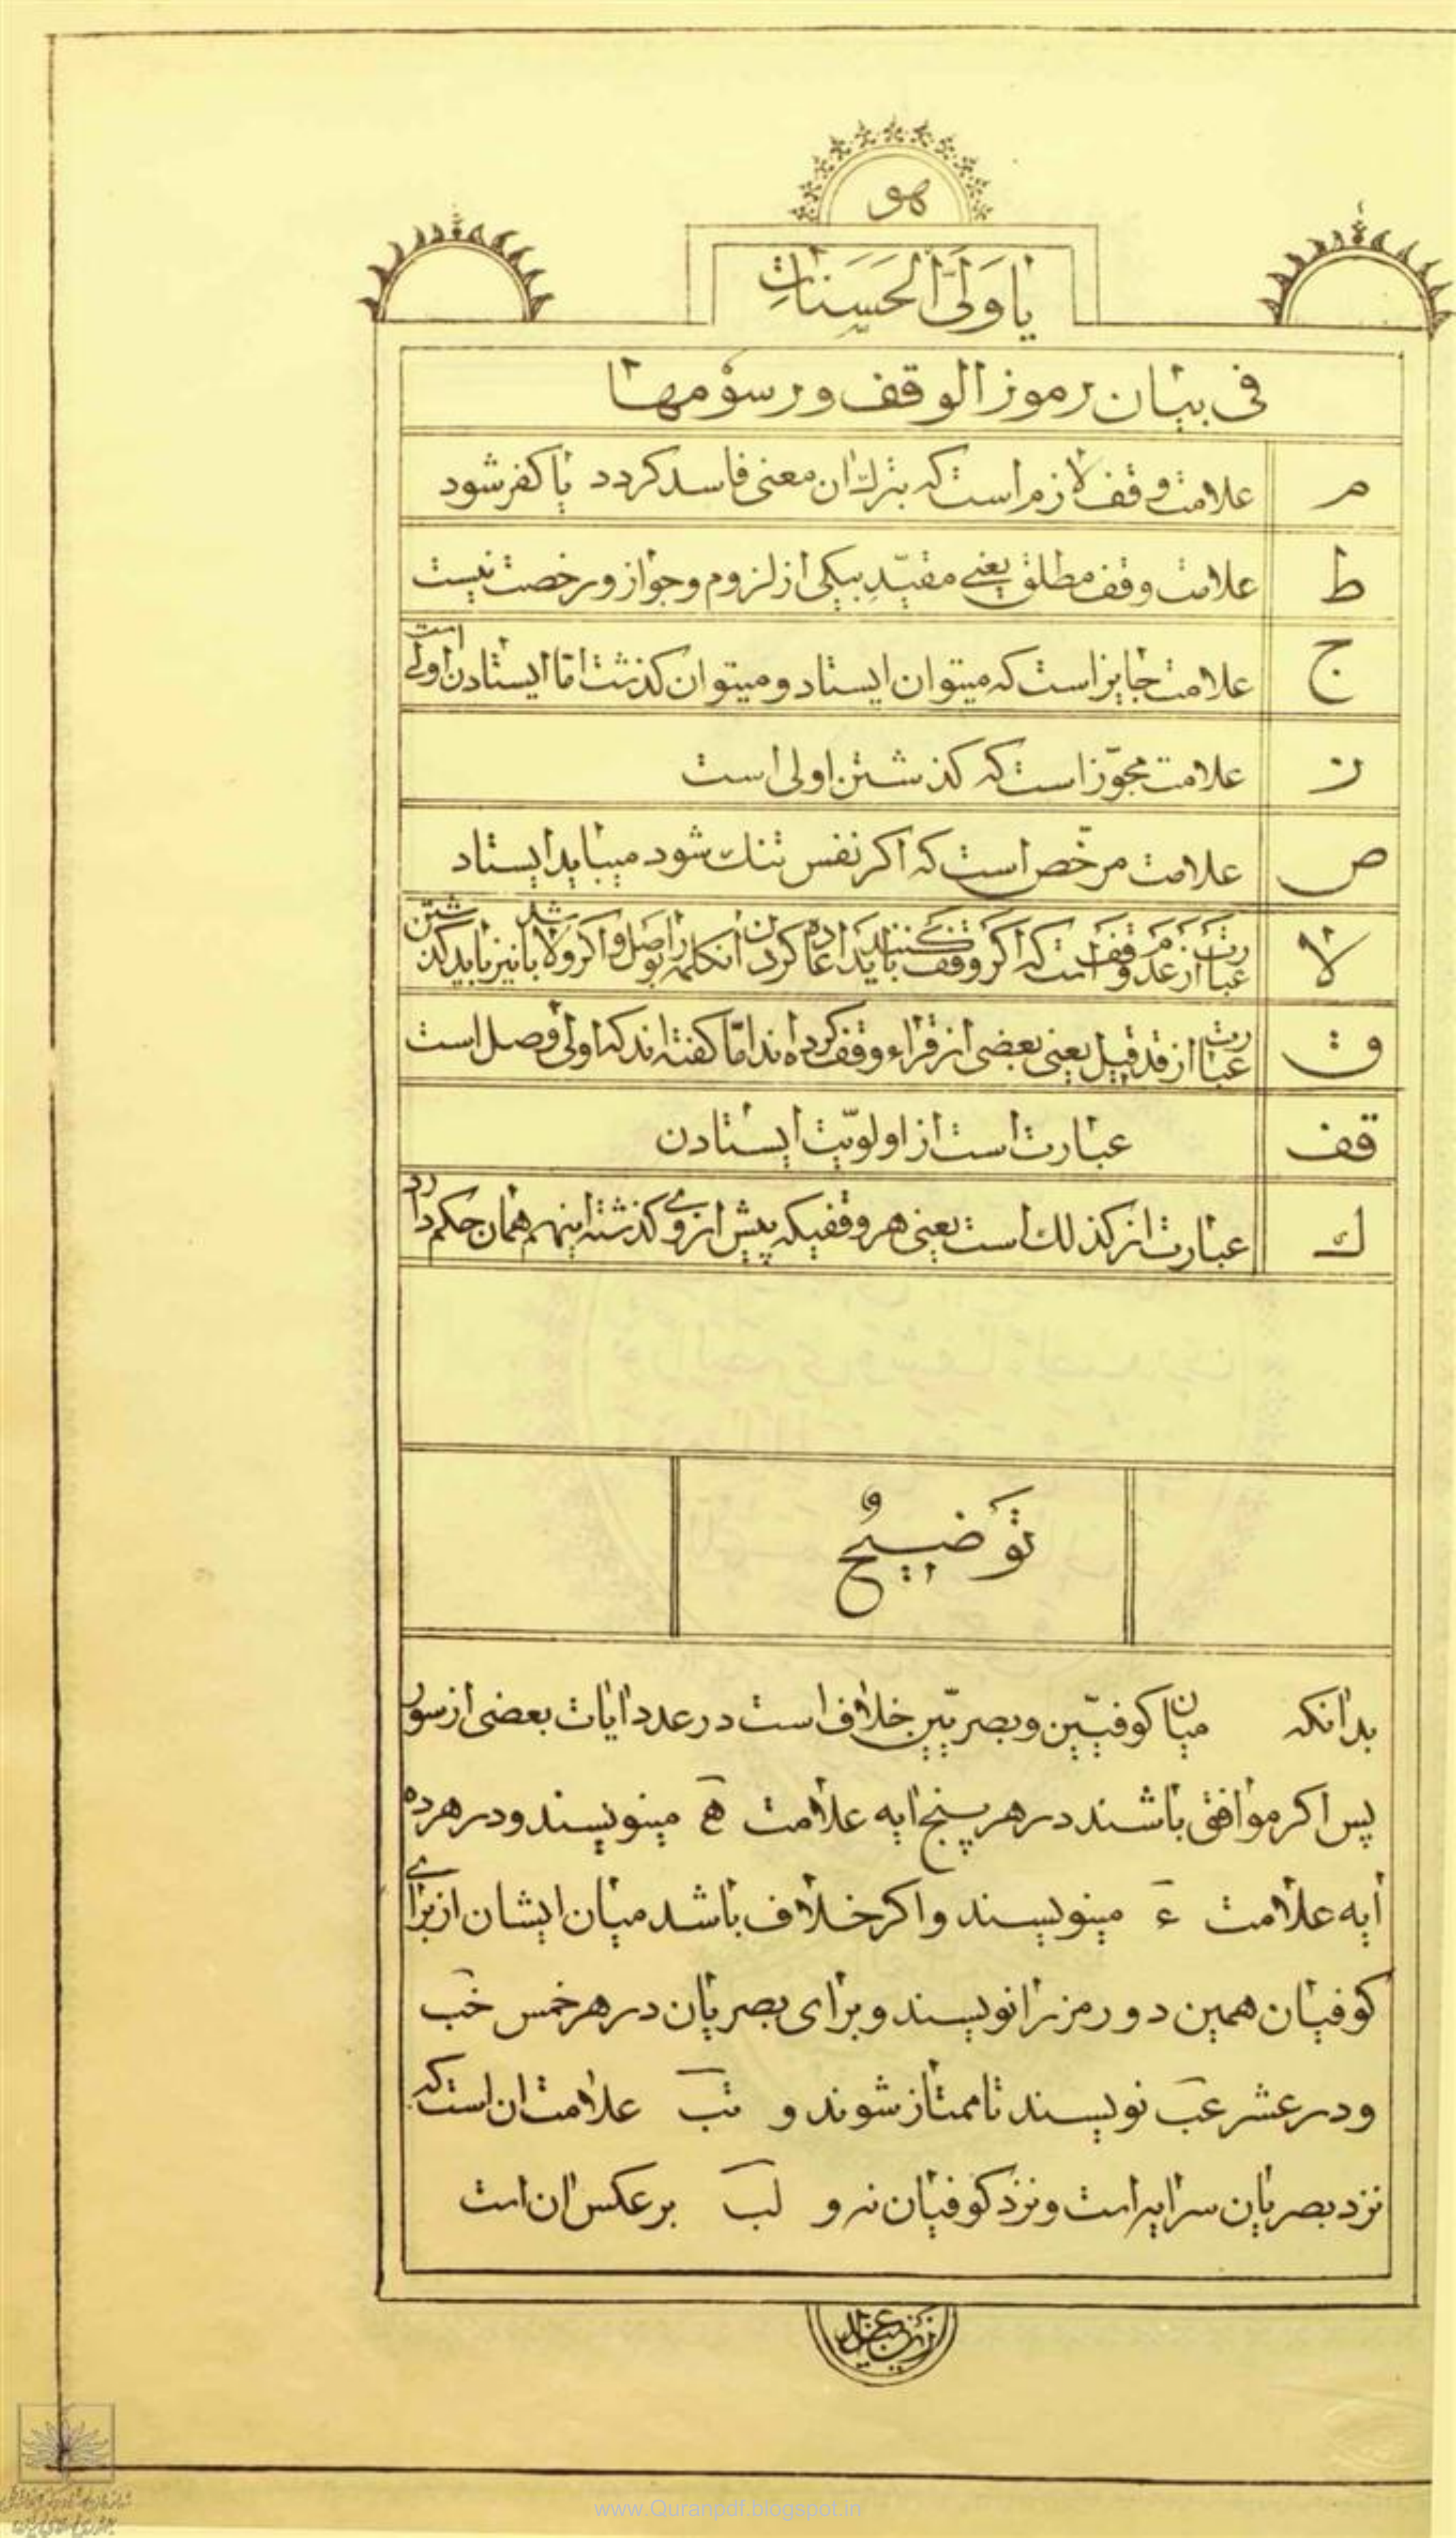 هو
یا وَلیَّ الحَسَناتِ
فی بیان رموز الوقف و رسومها
م علامت وقف لازم است که بترک ان معنی فاسد کردد یا کفر شود
ط علامت وقف مطلق یعنی مقیّدِ بیکی از لزوم و جواز و رخصت نیست
ج علامت جایز است که میتوان ایستاد و میتوان کذشت امّا ایستادن اولی است
ز علامت مجوّز است که کذشتن اولی است
ص علامت مرخّص است که اکر نفس تنک شود میباید ایستاد
لا عبارت از عَدَمَ وَقَفَ است که اکر وقف کنند باید اعاده کردن انکلمه را بوصل و اکر ولا باشد نیز باید کذشتن
ق عبارت از قد قیل یعنی بعضی از قراء وقف کرده اند امّا کفته اند که اولی وصل است
قف عبارت است از اولویّت ایستادن
ك عبارت از کذلك است یعنی هر وقفیکه پیش از وی کذشته اینهم همان حکم دارد
تَوضیحٌ
بدانکه میان کوفیّین و بصریّین خلاف است در عدد ایات بعضی از سور
پس اکر موافق باشند در هر پنج ایه علامت ه مینویسند و در هر ده
ایه علامت ء مینویسند و اکر خلاف باشد میان ایشان از برای
کوفیان همین دو رمز را نویسند و برای بصریان در هر خمس خب
و در عشر عب نویسند تا ممتاز شوند و تب علامت ان است که
نزد بصریان سر ایه است و نزد کوفیان نه و لب بر عکس ان است
www.Quranpdf.blogspot.in